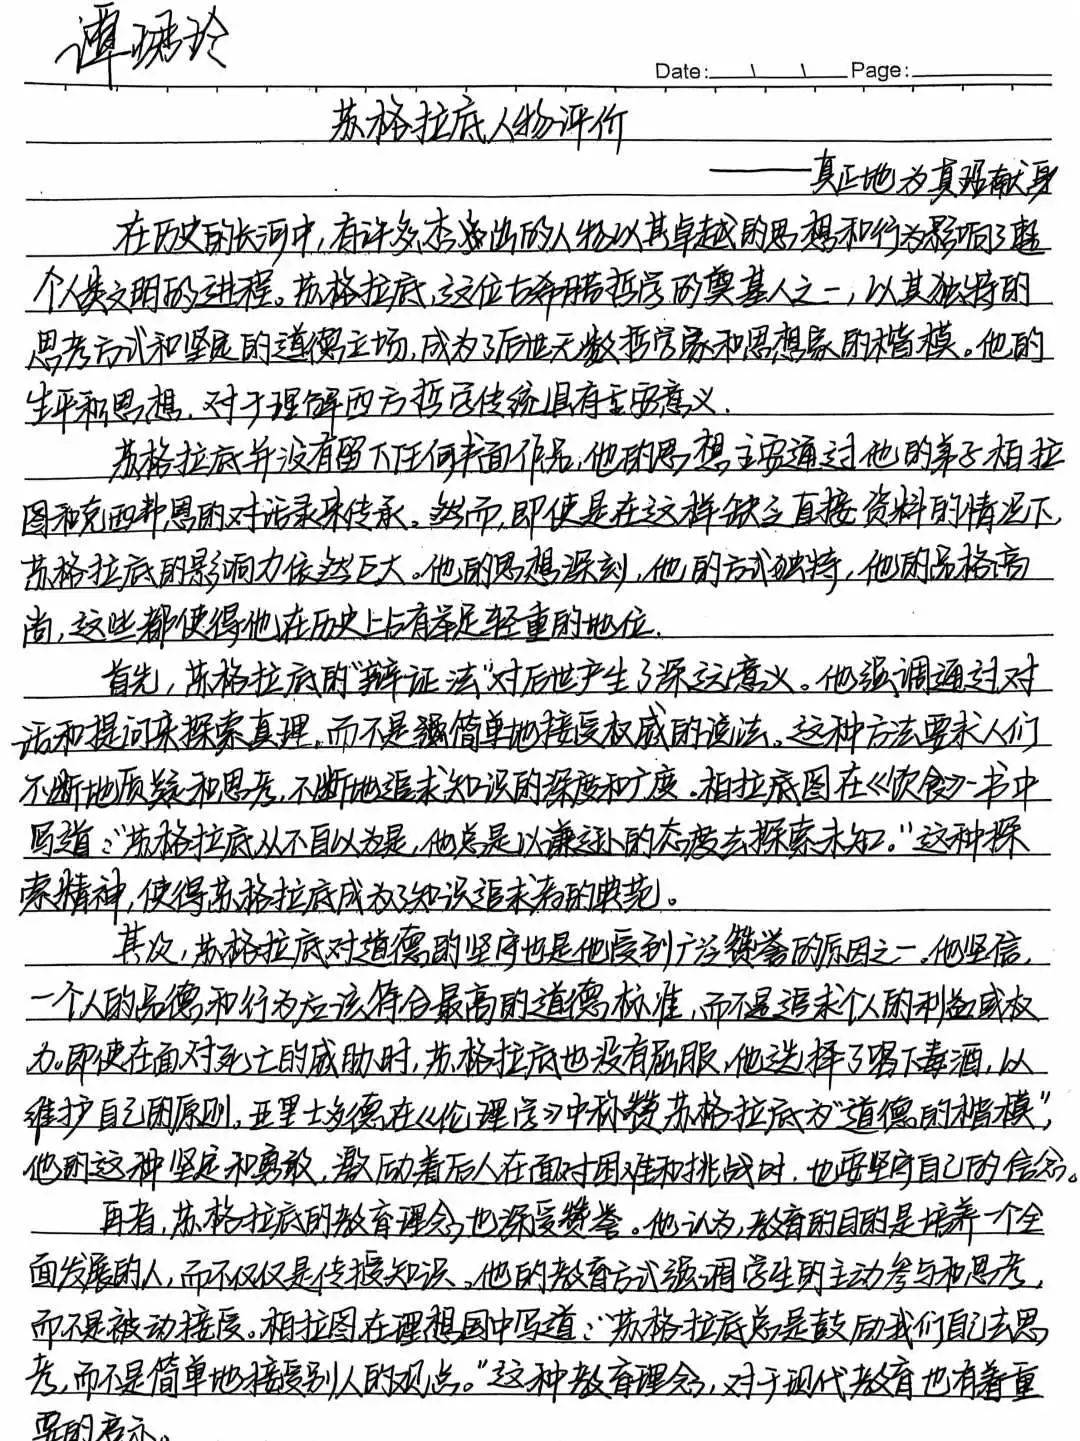 谭珺玲
Date: \ \ Page:
苏格拉底人物评价
——真正地为真理献身
在历史的长河中,有许多杰出的人物以其卓越的思想和行为影响了整
个人类文明的进程。苏格拉底,这位古希腊哲学的奠基人之一,以其独特的
思考方式和坚定的道德立场,成为了后世无数哲学家和思想家的楷模。他的
生平和思想,对于理解西方哲学传统具有至要意义.
苏格拉底并没有留下任何书面作品,他的思想主要通过他的弟子柏拉
图和克西那思的对话录来传承。然而,即使是在这样缺乏直接资料的情况下,
苏格拉底的影响力依然巨大。他的思想深刻,他的方式独特,他的品格高
尚,这些都使得他在历史上占有举足轻重的地位.
首先,苏格拉底的"辩证法"对后世产生了深远意义。他强调通过对
话和提问来探索真理,而不是简单地接受权威的说法。这种方法要求人们
不断地质疑和思考,不断地追求知识的深度和广度.柏拉底图在《饮食》一书中
写道:"苏格拉底从不自以为是,他总是以谦逊的态度去探索未知."这种探
索精神,使得苏格拉底成为了知识追求者的典范。
其次,苏格拉底对道德的坚守也是他受到广泛赞誉的原因之一.他坚信,
一个人的品德和行为应该符合最高的道德标准,而不是追求个人的利益或权
力.即使在面对死亡的威胁时,苏格拉底也没有屈服,他选择了喝下毒酒,以
维护自己的原则.亚里士多德在《伦理学》中称赞苏格拉底为"道德的楷模",
他的这种坚定和勇敢,激励着后人在面对困难和挑战时,也要坚守自己的信念。
再者,苏格拉底的教育理念也深受赞誉。他认为,教育的目的是培养一个全
面发展的人,而不仅仅是传授知识.他的教育方式强调学生的主动参与和思考,
而不是被动接受。柏拉图在理想国中写道:"苏格拉底总是鼓励我们自己去思
考,而不是简单地接受别人的观点。"这种教育理念,对于现代教育也有着重
要的启示。